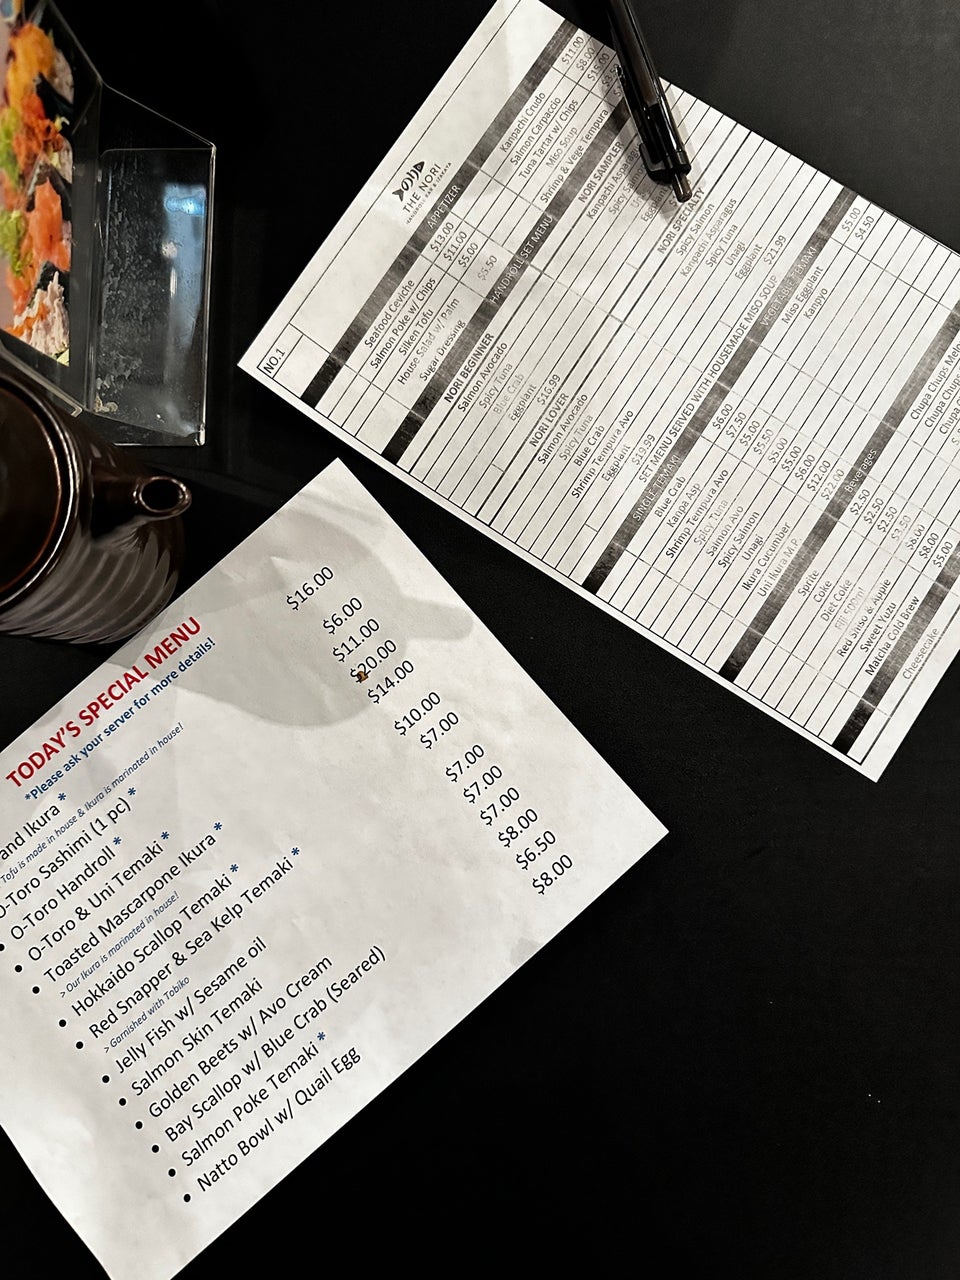 TODAY'S SPECIAL MENU
*Please ask your server for more details!
and Ikura * $16.00
Tofu is made in house & Ikura is marinated in house!
O-Toro Sashimi (1 pc) * $6.00
O-Toro Handroll * $11.00
O-Toro & Uni Temaki * $20.00
Toasted Mascarpone Ikura * $14.00
> Our Ikura is marinated in house!
Hokkaido Scallop Temaki * $10.00
Red Snapper & Sea Kelp Temaki * $7.00
> Garnished with Tobiko
Jelly Fish w/ Sesame oil $7.00
Salmon Skin Temaki $7.00
Golden Beets w/ Avo Cream $7.00
Bay Scallop w/ Blue Crab (Seared) $8.00
Salmon Poke Temaki * $6.50
Natto Bowl w/ Quail Egg $8.00
NO.1
THE NORI
HANDROLL BAR & IZAKAYA
APPETIZER
Seafood Ceviche $13.00
Salmon Poke w/ Chips $11.00
Silken Tofu $5.00
House Salad w/ Palm
Sugar Dressing $5.50
Kanpachi Crudo $11.00
Salmon Carpaccio $8.00
Tuna Tartar w/ Chips $15.00
Miso Soup
Shrimp & Vege Tempura
HANDROLL SET MENU
NORI BEGINNER
Salmon Avocado
Spicy Tuna
Blue Crab
Eggplant $16.99
NORI LOVER
Salmon Avocado
Spicy Tuna
Blue Crab
Shrimp Tempura Avo
Eggplant $19.99
NORI SAMPLER
Kanpachi Asparag
Spicy Salmon
Eggplant
NORI SPECIALTY
Spicy Salmon
Kanpachi Asparagus
Spicy Tuna
Unagi
Eggplant $21.99
SET MENU SERVED WITH HOUSEMADE MISO SOUP
SINGLE TEMAKI
Blue Crab $6.00
Kanpa Asp $7.50
Shrimp Tempura Avo $5.00
Spicy Tuna $5.50
Salmon Avo $5.00
Spicy Salmon $5.00
Unagi $6.00
Ikura Cucumber $12.00
Uni Ikura M.P. $22.00
VEGETABLE TEMAKI
Miso Eggplant $5.00
Kanpyo $4.50
Beverages
Sprite $2.50
Coke $2.50
Diet Coke $2.50
Fiji 500ml $3.50
Red Shiso & Apple $6.00
Sweet Yuzu $8.00
Matcha Cold Brew $5.00
Cheesecake
Chupa Chups Melo
Chupa Chups
Chupa C